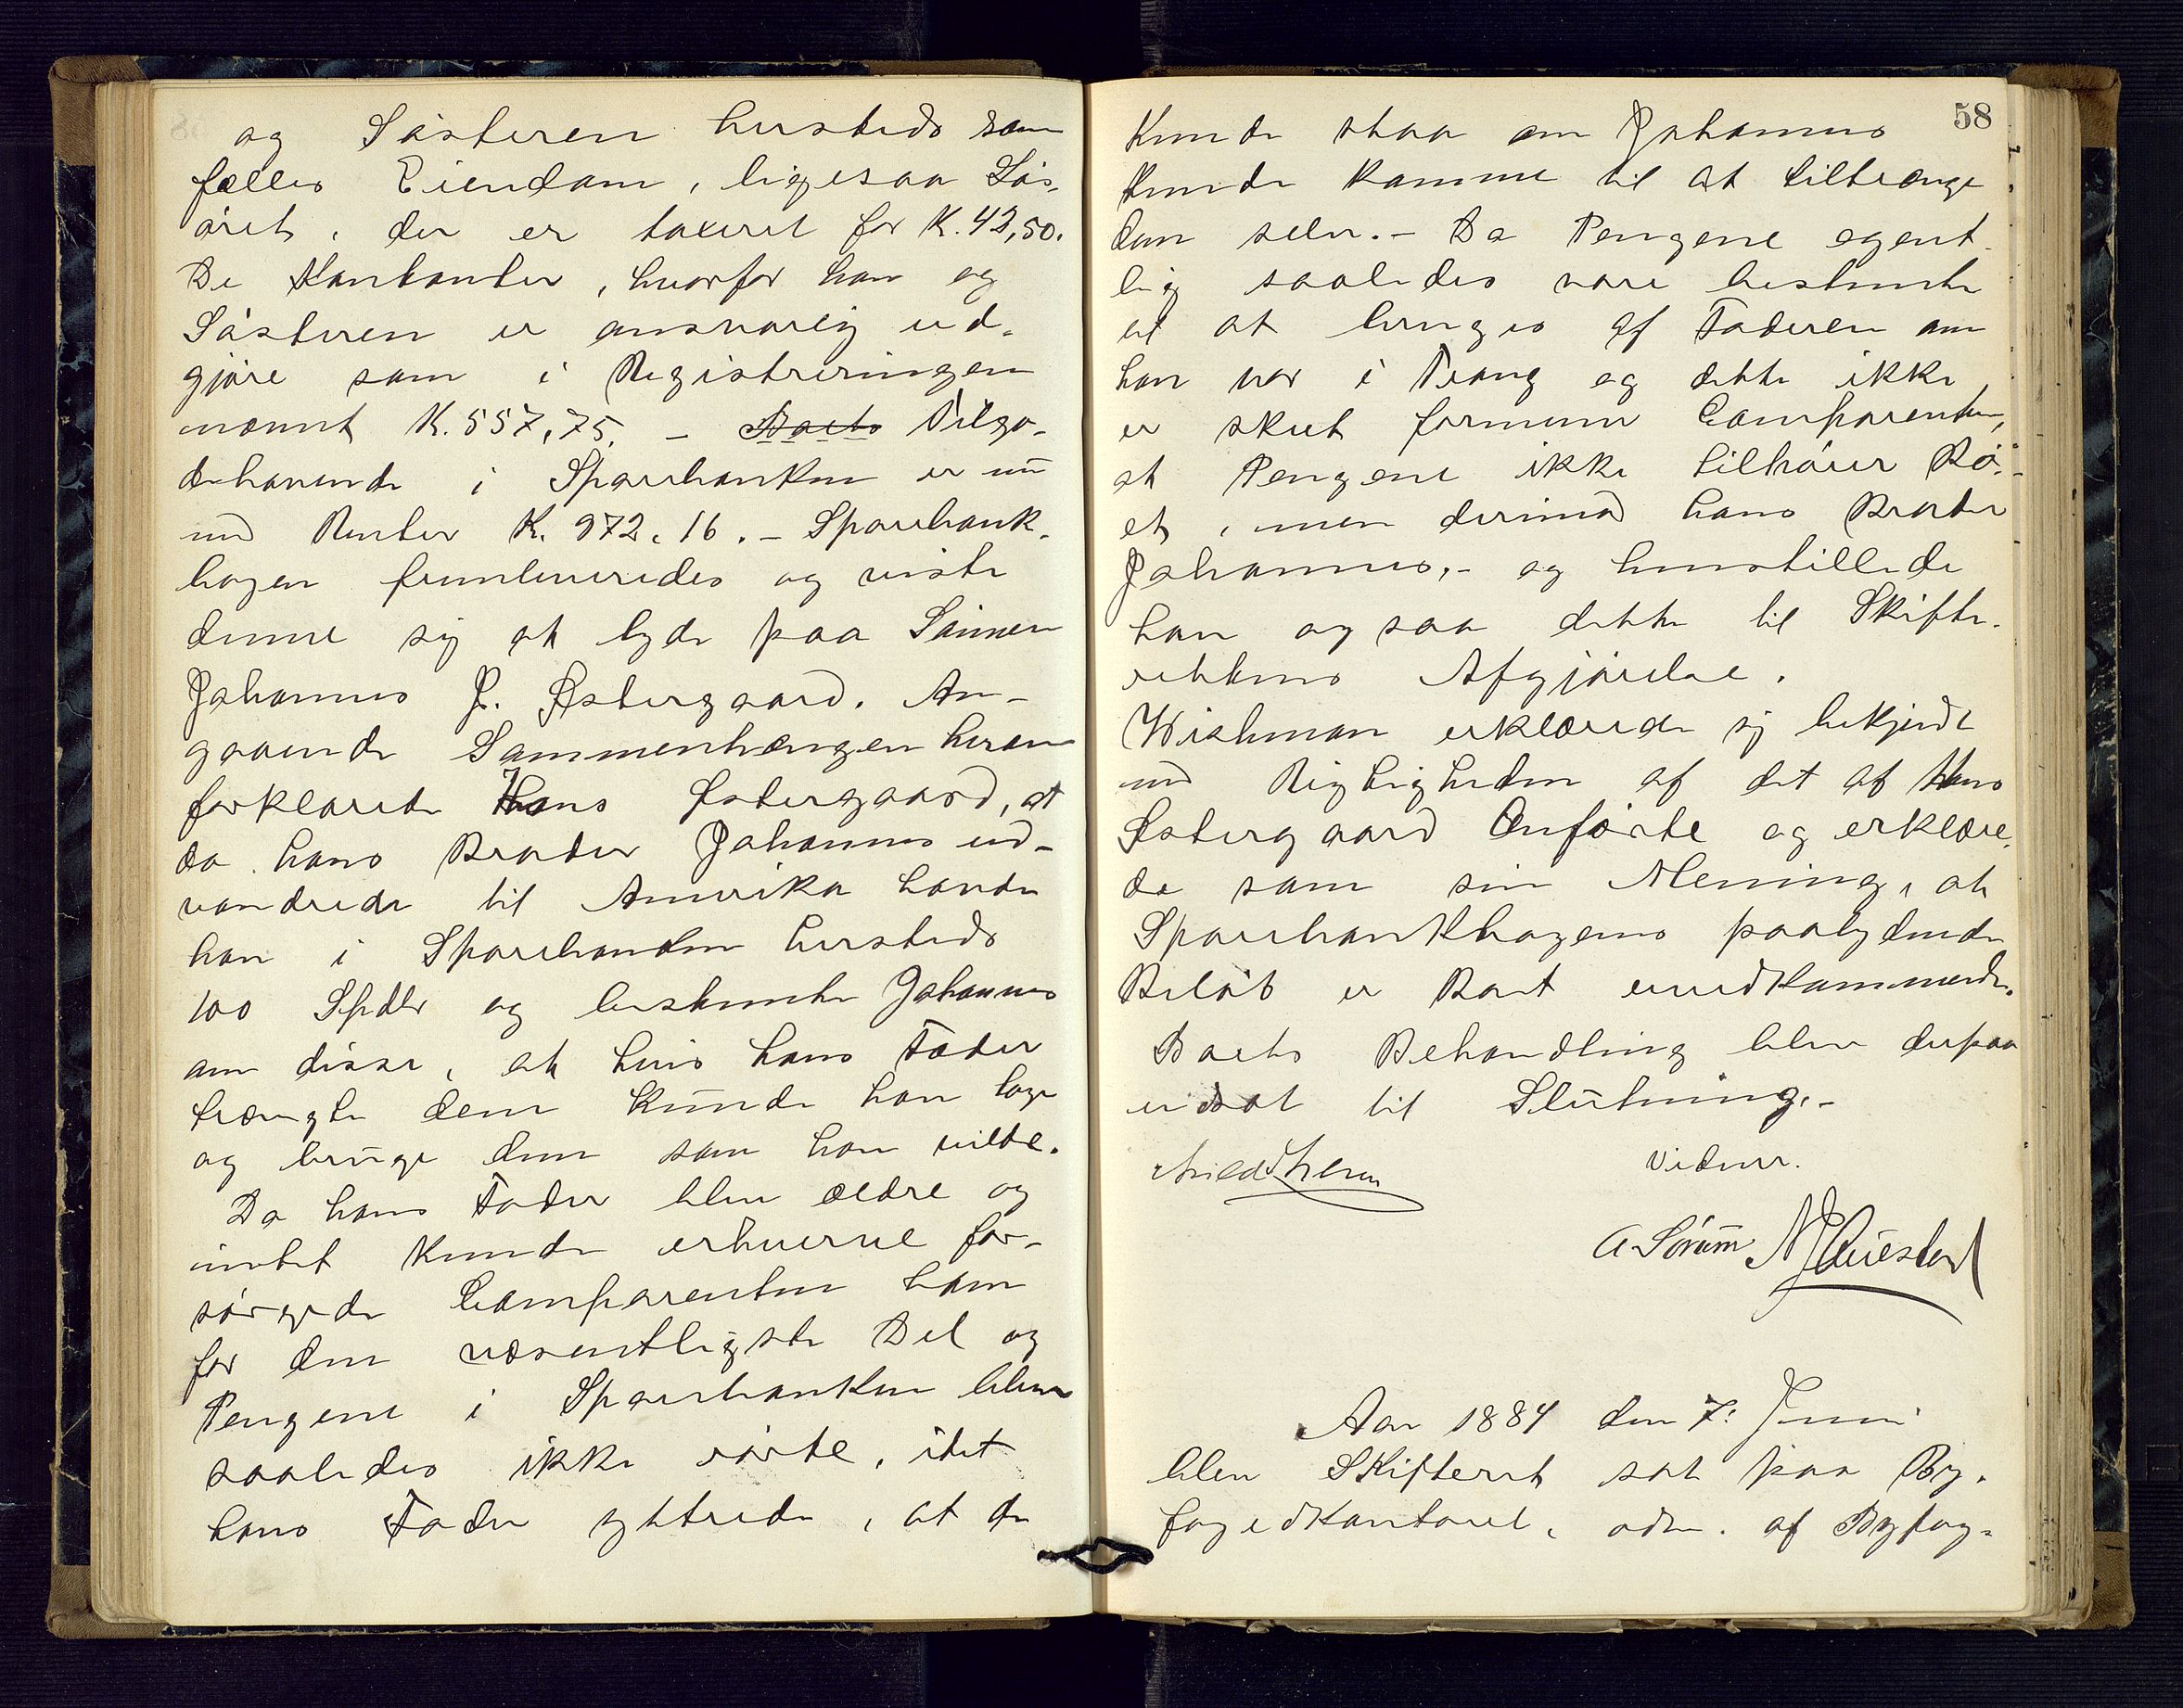 og Søsteren hersteds som
fælles Eiendom, ligesaa Løs-
øret, der er taxeret for K. 42,50.
De Kontanter, hvorfor han og
Søsteren er ansvarlig ud-
gjøre som i Registreringen
nævnt K. 557,75. – Boets Tilgo-
dehavende i Sparebanken er nu
med Renter K. 972,16. – Sparebank-
bogen fremleveredes og viste
denne sig at lyde paa Sønnen
Johannes J. Østergaard. An-
gaaende Sammenhængen herom
forklarede Hans Østergaard, at
da hans Broder Johannes ud-
vandrede til Amerika havde
han i Sparebanken hersteds
100 Spdlr og bestemte Johannes
om disse, at hvis hans Fader
trængte dem kunde han tage
og bruge dem som han vilde.
Da hans Fader blev ældre og
intet kunde erhverve for-
sørgede Comparenten ham
for den væsentligste Del og
Pengene i Sparebanken blev
saaledes ikke rørte, idet
hans Fader yttrede, at de
58
kunde staa om Johannes
kunde komme til at tiltrænge
dem selv. – Da Pengene egent-
lig saaledes vare bestemte
til at bruges af Faderen om
han var i Trang og dette ikke
er skeet formener Comparenten,
at Pengene ikke tilhører Bo-
et, men derimod hans Broder
Johannes, – og henstillede
han ogsaa dette til Skifte-
rettens Afgjørelse.
Wishman erklærede sig bekjendt
med Rigtigheden af det af Hans
Østergaard Anførte og erklære-
de som sin Mening, at
Sparebankbogens paalydende
Beløb er Boet uvedkommende.
Boets Behandling blev derpaa
udsat til Slutning. –
Vidner.
A Sörum
Aar 1884 den 7: Juni
blev Skifteret sat paa By-
fogedkontoret, adm. af Byfog-